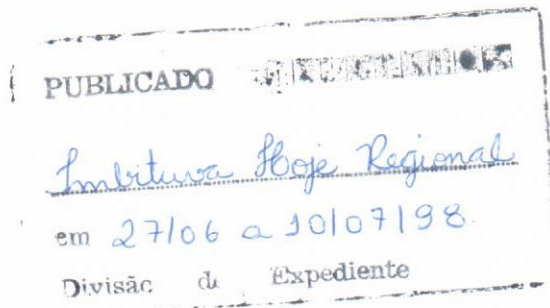 PUBLICADO
Imbituva Hoje Regional
em 27/06 a 10/07/98.
Divisão de Expediente